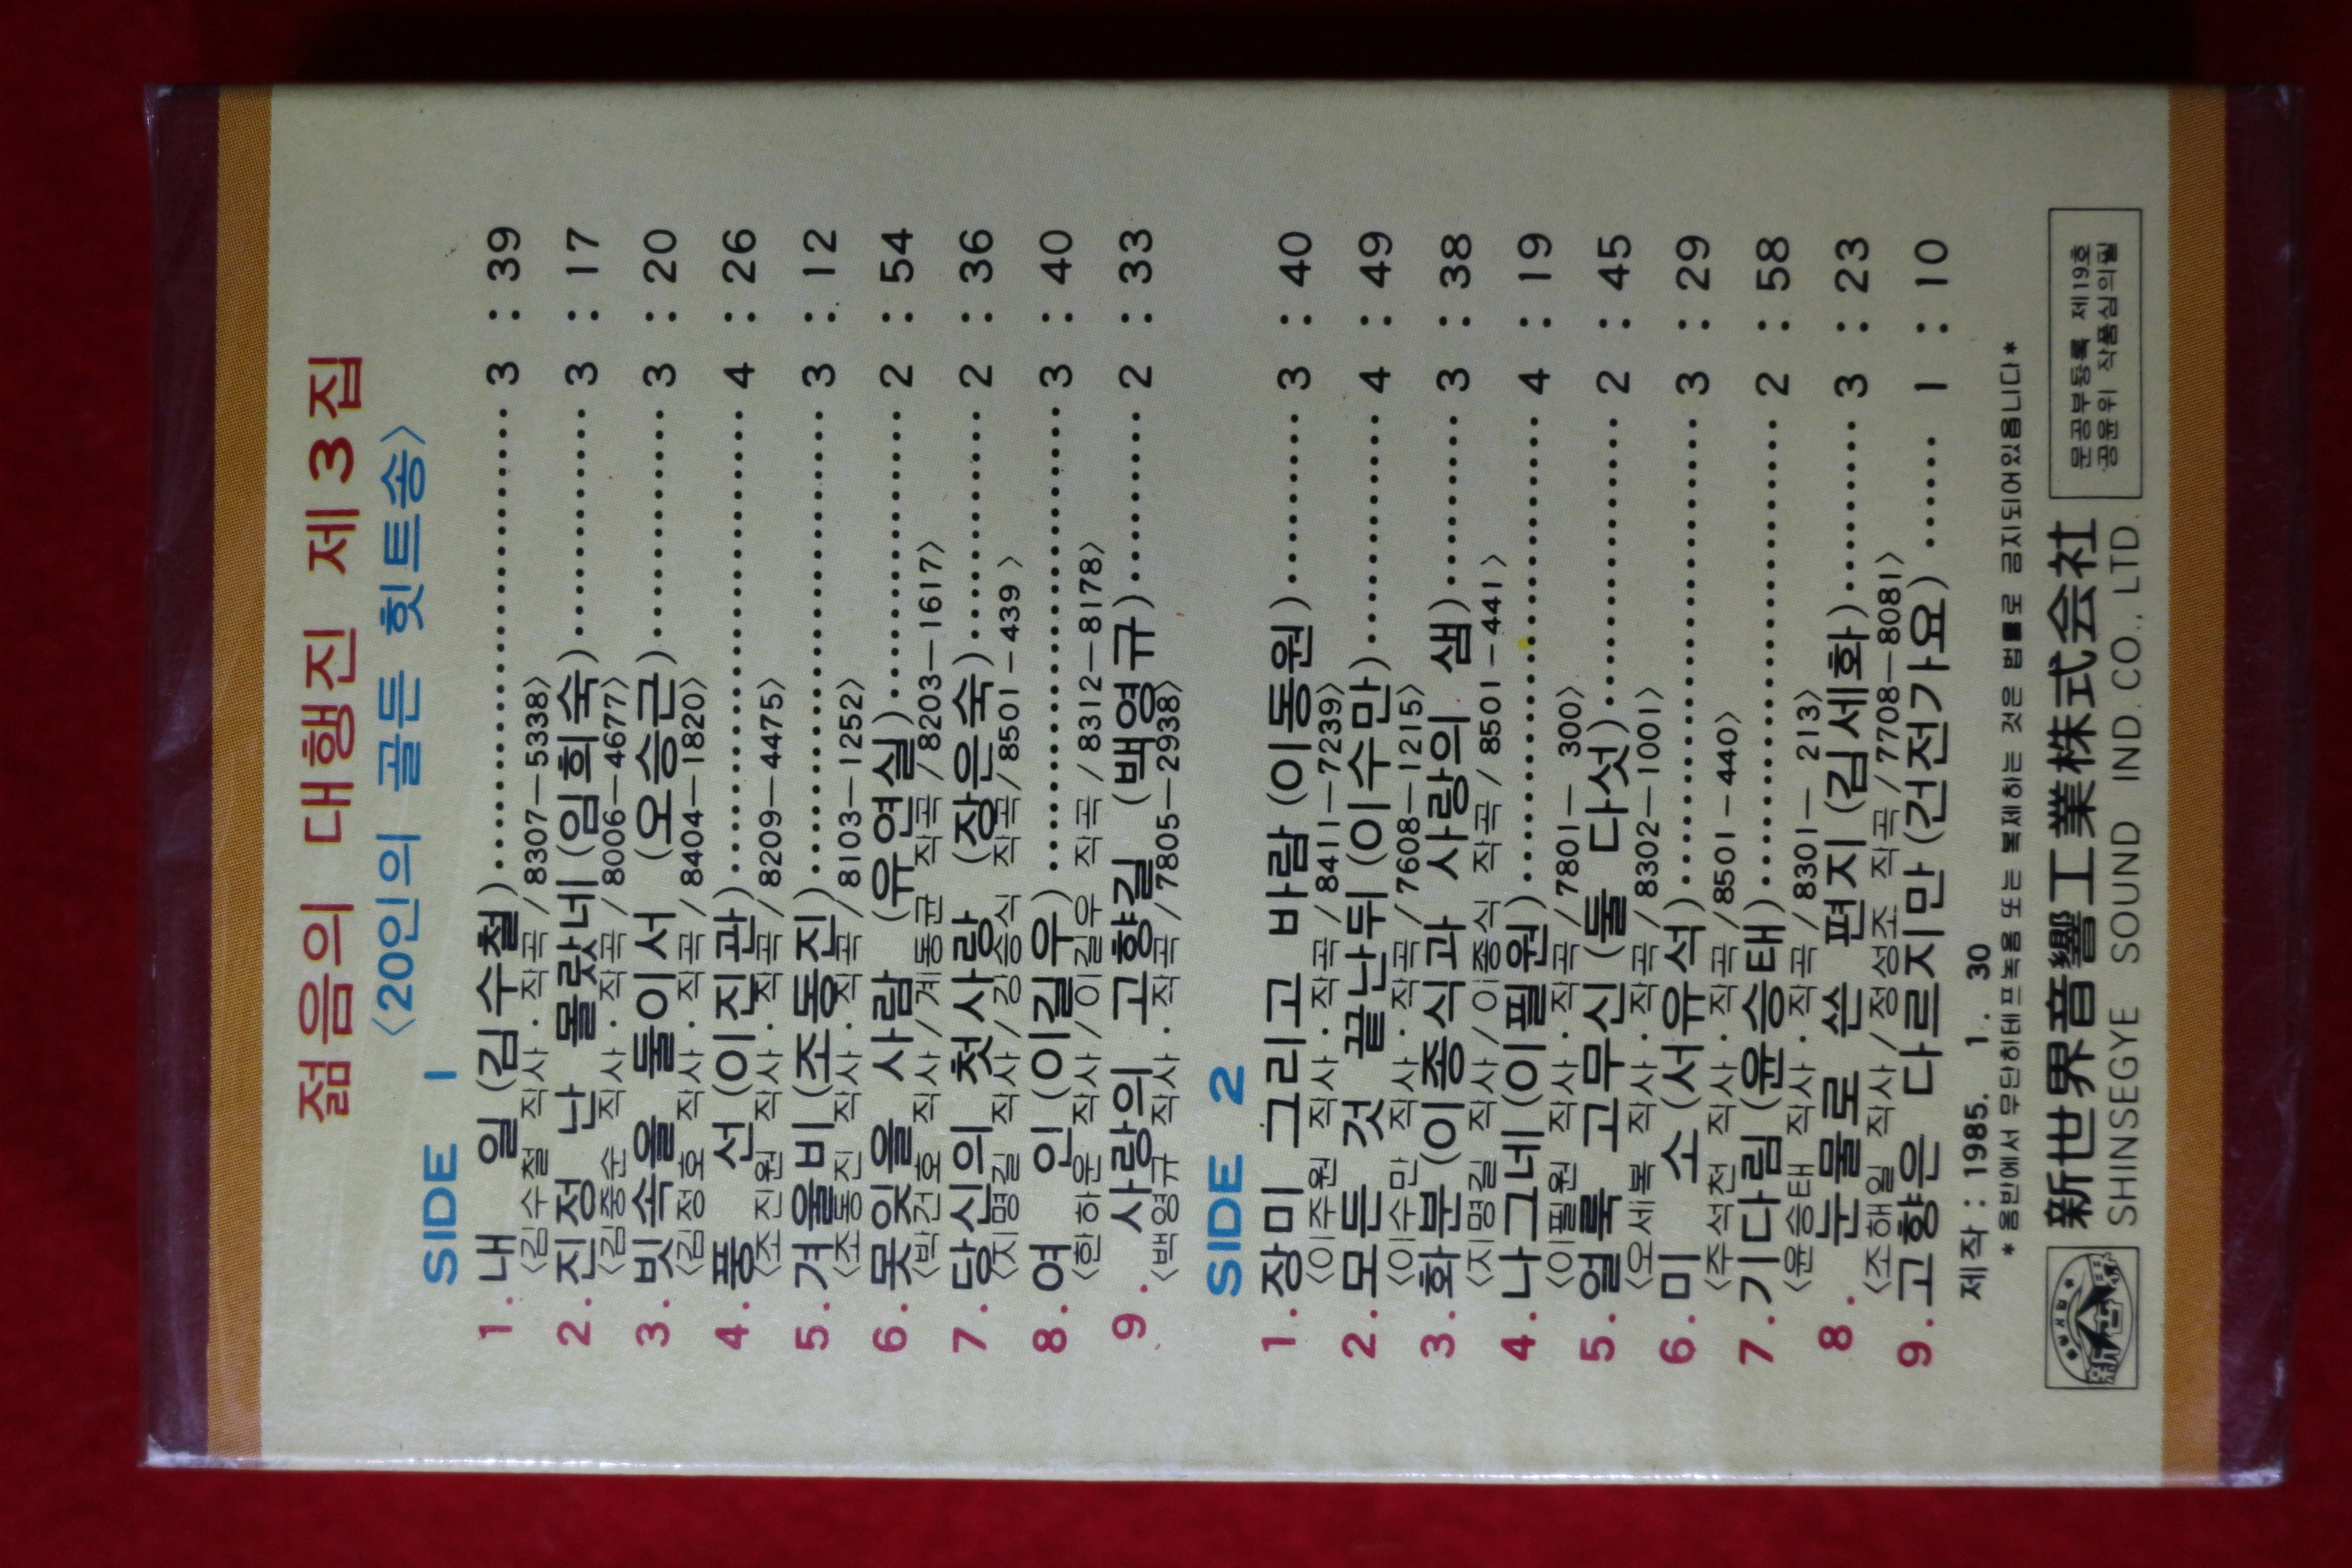 젊음의 대행진 제3집
〈20인의 골든 힛트송〉
SIDE 1
1. 내 일 (김수철) 3 : 39
〈김수철 작사 · 작곡/8307-5338〉
2. 진정 난 몰랐네 (임희숙) 3 : 17
〈김중순 작사 · 작곡/8006-4677〉
3. 빗속을 둘이서 (오승근) 3 : 20
〈김정호 작사 · 작곡/8404-1820〉
4. 풍 선 (이진관) 4 : 26
〈조진원 작사 · 작곡/8209-4475〉
5. 겨울비 (조동진) 3 : 12
〈조동진 작사 · 작곡/8103-1252〉
6. 못잊을 사람 (유연실) 2 : 54
〈박건호 작사/계동균 작곡/8203-1617〉
7. 당신의 첫사랑 (장은숙) 2 : 36
〈지명길 작사/김승식 작곡/8501-439〉
8. 여 인 (이길우) 3 : 40
〈한하운 작사/이길우 작곡/8312-8178〉
9. 사랑의 고향길 (백영규) 2 : 33
〈백영규 작사 · 작곡/7805-2938〉
SIDE 2
1. 장미 그리고 바람 (이동원) 3 : 40
〈이주원 작사 · 작곡/8411-7239〉
2. 모든 것 끝난뒤 (이수만) 4 : 49
〈이수만 작사 · 작곡/7608-1215〉
3. 화분 (이종식과 사랑의 샘) 3 : 38
〈지명길 작사/이종식 작곡/8501-441〉
4. 나그네 (이필원) 4 : 19
〈이필원 작사 · 작곡/7801- 300〉
5. 얼룩 고무신 (둘 다섯) 2 : 45
〈오세복 작사 · 작곡/8302-1001〉
6. 미 소 (서유석) 3 : 29
〈주석천 작사 · 작곡/8501-440〉
7. 기다림 (윤승태) 2 : 58
〈윤승태 작사 · 작곡/8301- 213〉
8. 눈물로 쓴 편지 (김세화) 3 : 23
〈조해일 작사/정성조 작곡/7708-8081〉
9. 고향은 다르지만 (건전가요) 1 : 10
제작 : 1985. 1. 30
*음반에서 무단히테프녹음 또는 복제하는 것은 법률로 금지되어있읍니다*
新世界音響工業株式会社
SHINSEGYE SOUND IND. CO., LTD.
문공부등록 제19호
공윤위 작품심의필